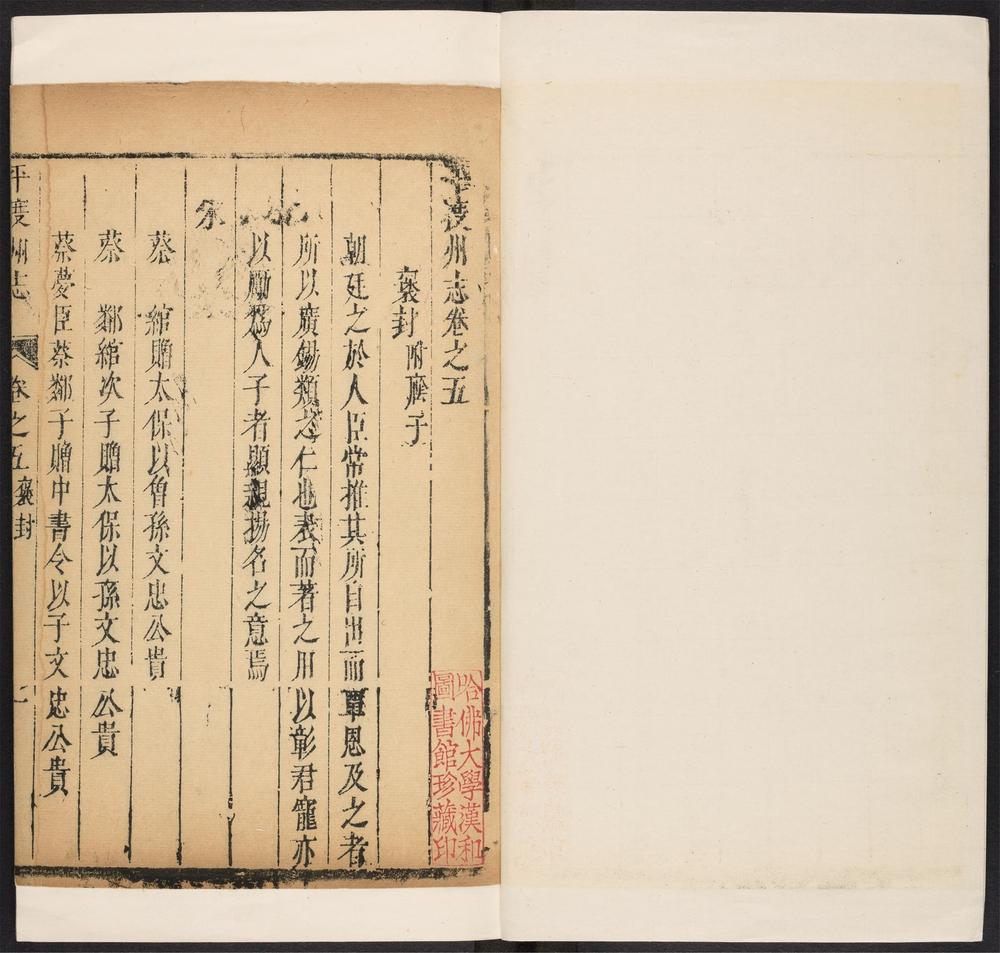 平度州志卷之五
褒封附廕子
朝廷之於人臣常推其所自出而覃恩及之者
所以廣錫類之仁也表而著之用以彰君寵亦
以勵為人子者顯親揚名之意焉
蔡　綰贈太保以曾孫文忠公貴
蔡　鄰綰次子贈太保以孫文忠公貴
蔡夢臣蔡鄰子贈中書令以子文忠公貴
平度州志　卷之五褒封
哈佛大學漢和
圖書館珍藏印